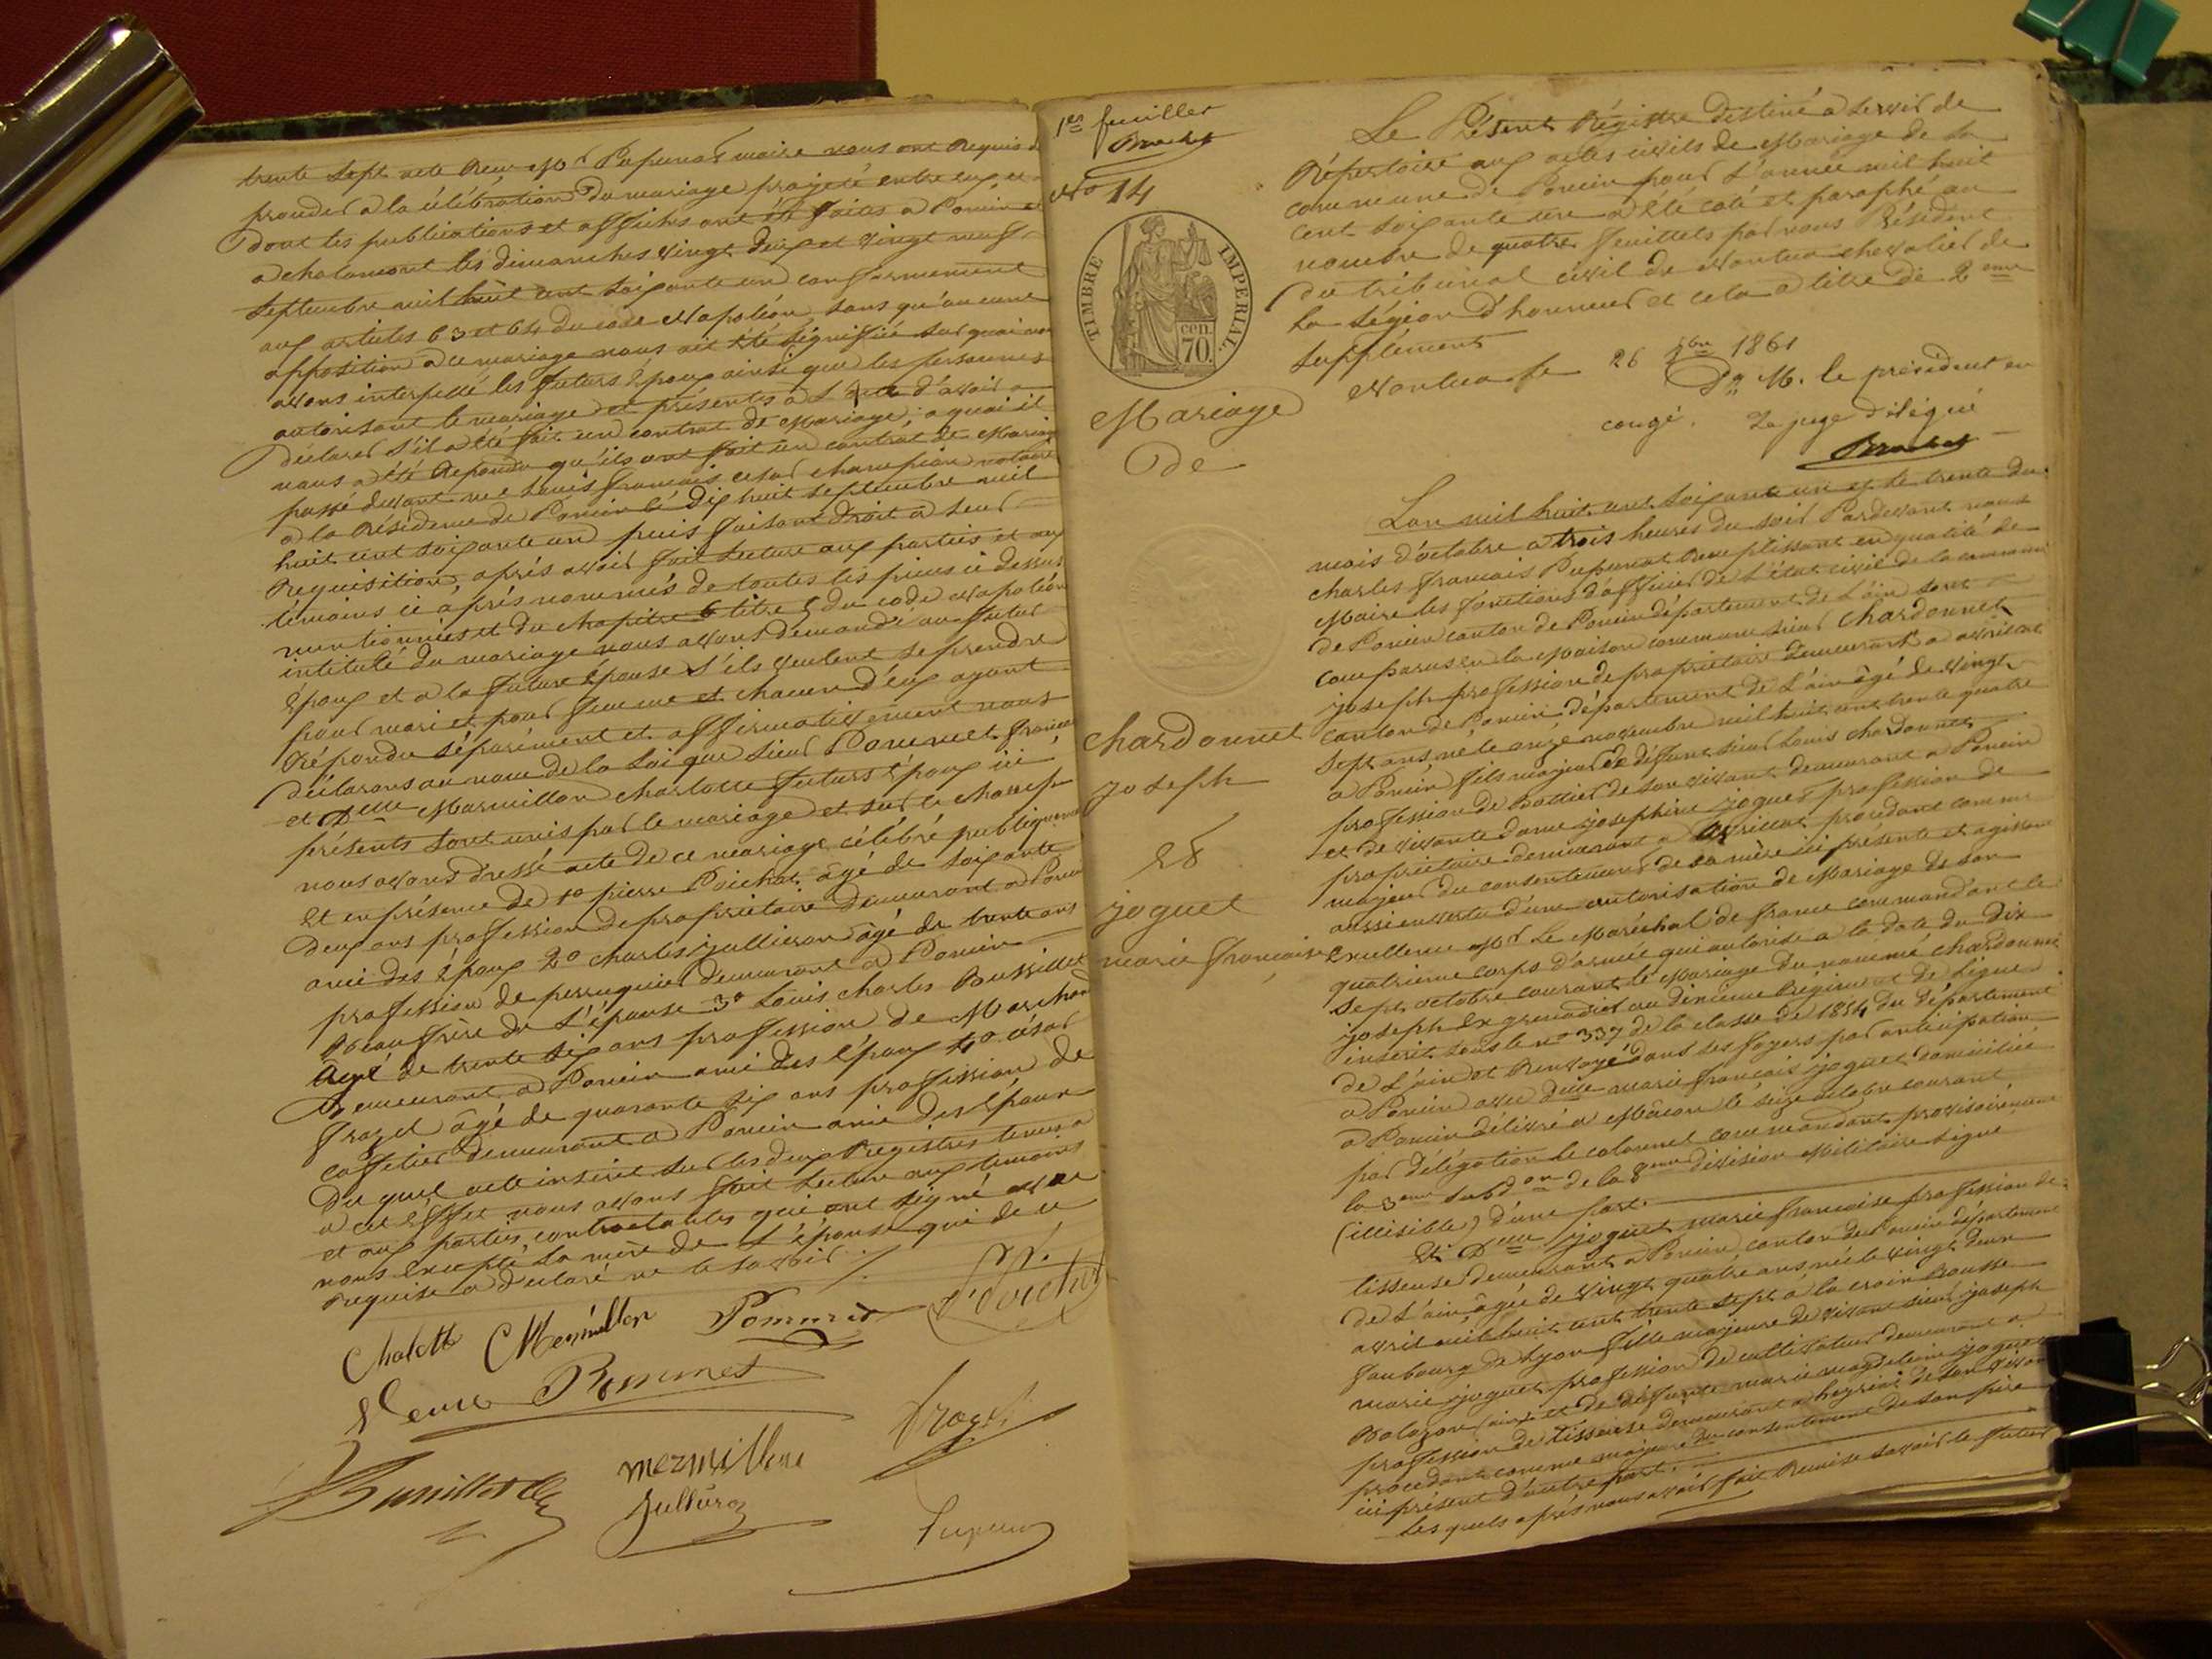 trente sept acte reçu Mr Pupunat maire nous ont requis de
procéder à la célébration du mariage projeté entre eux et
dont les publications et affiches ont été faites a Poncin et
a chalamont les dimanches vingt deux et vingt neuf
septembre mil huit cent soixante un conformément
aux articles 63 et 64 du code Napoléon, sans qu'aucune
opposition a ce mariage nous ait été signifiée sur quoi nous
avons interpellé les futurs époux ainsi que les personnes
autorisant le mariage et présentes à l'acte d'avoir a
déclarer s'il a été fait un contrat de Mariage; a quoi il
nous a été répondu qu'ils ont fait un contrat de Mariage
passé devant me Louis françois césar champion notaire
a la Résidence de Poncin le dix huit septembre mil
huit cent soixante un puis faisant droit a leur
Requisition, après avoir fait lecture aux parties et aux
témoins ci après nommés de toutes les pièces ci dessus
mentionnées et du chapitre 6 titre 5 du code Napoléon
intitulé du mariage nous avons demandé au futur
époux et a la future épouse s'ils veulent se prendre
pour mari et pour femme et chacun d'eux ayant
Répondu séparément et affirmativement nous
déclarons au nom de la loi que sieur Pommet
et Delle Marmillon charlotte futurs époux ici
présents sont unis par le mariage et sur le champ
nous avons dressé acte de ce mariage célébré publiquement
Et en présence de 1o pierre Poichat âgé de soixante
deux ans profession de propriétaire demeurant a Poncin
ami des époux 2o charles jullieron âgé de trente ans
profession de perruquier demeurant a Poncin
Beau frère de l'épouse 3o Louis charles Bussillet
agé de trente six ans profession de Marchand
Demeurant a Poncin ami des époux 4o césar
frozet âgé de quarante six ans profession de
caffetier demeurant a Poncin ami des époux
Du quel acte inscrit sur les deux Registres tenus a
a cet effet nous avons fait lecture aux témoins
et aux parties contractantes qui ont signé avec
nous excepté la mère de l'épouse qui de ce
requise a déclaré ne le savoir ./.
Pommet
Pommet
mermillon
1er feuillet
No 14
TIMBRE IMPERIAL
cen.
70.
Mariage
De
chardonnet
joseph
Et
joguet
marie françoise
Le Présent Régistre destiné a servir de
Répertoire aux actes civils de Mariage de la
commune de Poncin pour l'année mil huit
cent soixante un a été coté et paraphé au
nombre de quatre feuillets par nous Président
du tribunal civil de Nantua chevalier de
la Légion d'honneur et cela a titre de 2eme
supplément
Nantua le 26 8bre 1861
Pr M. le président en
congé. Le juge délégué
L'an mil huit cent soixante un et le trente du
mois d'octobre a trois heures du soir Pardevant nous
charles françois Pupunat Remplissant en qualité de
Maire les fonctions d'officier de l'état civil de la commune
de Poncin canton de Poncin département de l'ain sont
comparus en la Maison commune sieur Chardonnet
joseph profession de propriétaire demeurant a
canton de Poncin département de l'ain âgé de vingt
sept ans né le onze novembre mil huit cent trente quatre
a Poncin fils majeur de défunt sieur Louis chardonnet
profession de Battier de son vivant demeurant a Poncin
et de vivante dame josephine joguet profession de
propriétaire demeurant a procédant comme
majeur du consentement de sa mère ici présente et agissant
aussi en vertu d'une autorisation de Mariage de son
Excellence Mr Le Maréchal de france commandant le
quatrieme corps d'armée qui autorise a la date du dix
sept octobre courant le Mariage du nommé chardonnet
joseph Ex grenadier au dixieme Régiment de Ligne
inscrit sous le no 337 de la classe de 1854 du département
de l'ain et Renvoyé dans ses foyers par anticipation
a Poncin avec delle marie françois joguet domiciliée
a Poncin délivré a Mâcon le seize octobre courant
par délégation le colonel commandant provisoirement
la 3eme subdon de la 8eme division Militaire signé
(illisible) d'une part.
Et Delle joguet marie françoise profession de
tisseuse demeurant a Poncin canton de Poncin département
de l'ain âgée de vingt quatre ans née le vingt deux
avril mil huit cent trente sept à la croix Rousse
faubourg de Lyon fille majeure de vivant sieur joseph
marie joguet profession de cultivateur demeurant a
Bolozon (ain) et de défunte marie magdeleine joguet
profession de tisseuse demeurant a heyriat de son vivant
procédant comme majeure du consentement de son père
ici présent d'autre part.
Les quels après nous avoir fait Remise savoir le futur